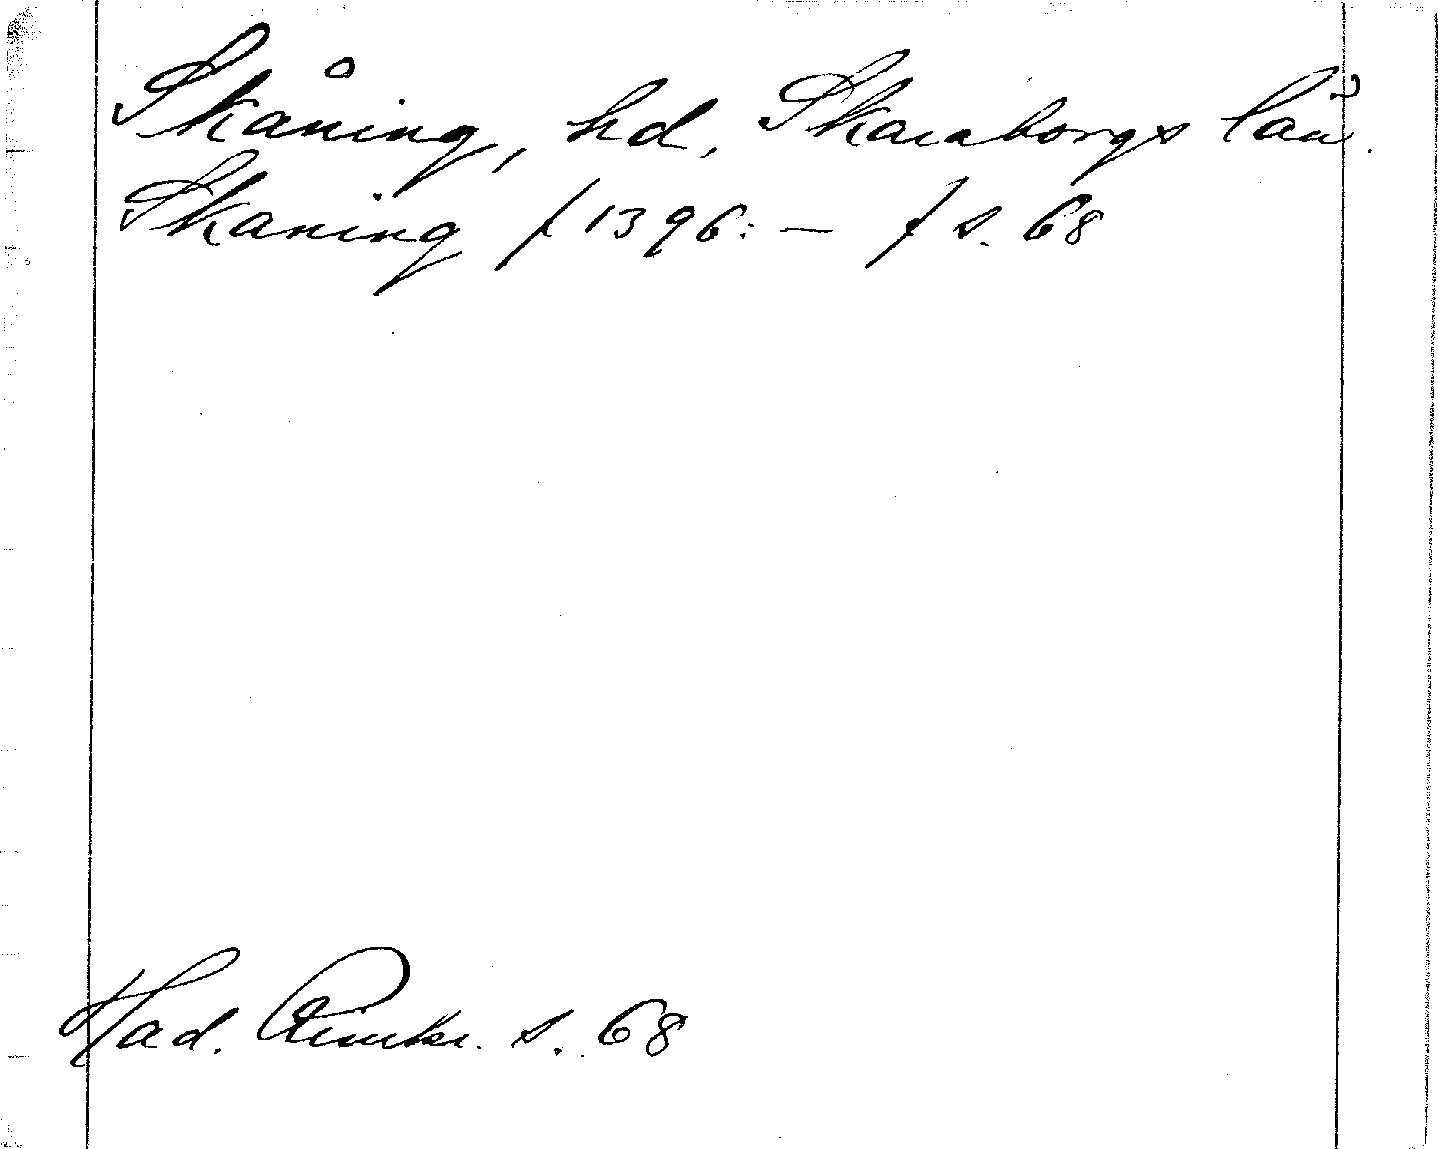 Skåning, hd, Skaraborgs län.
Skaning / 1396: - / s. 68
Had. Rimkr. s. 68